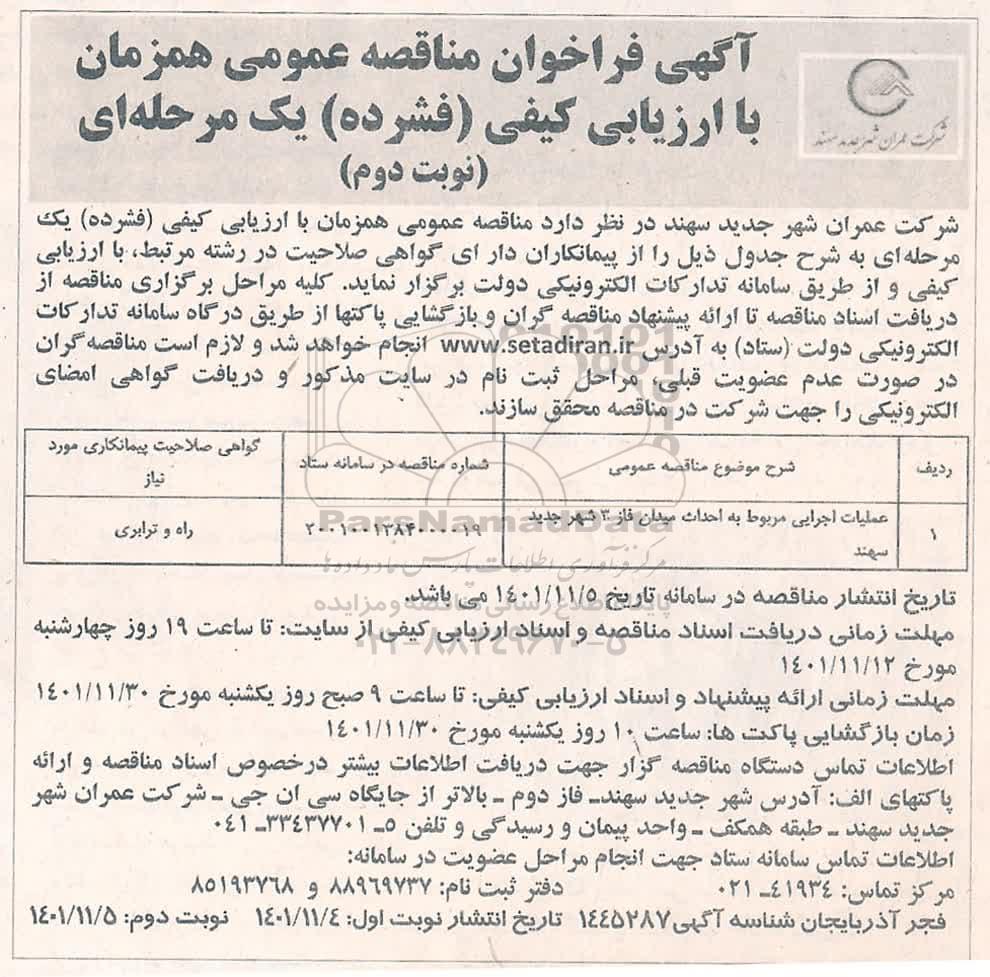 آگهی فراخوان مناقصه عمومی همزمان
با ارزیابی کیفی (فشرده) یک مرحله‌ای
(نوبت دوم)
شرکت عمران شهر جدید سهند
شرکت عمران شهر جدید سهند در نظر دارد مناقصه عمومی همزمان با ارزیابی کیفی (فشرده) یک
مرحله‌ای به شرح جدول ذیل را از پیمانکاران دار ای گواهی صلاحیت در رشته مرتبط، با ارزیابی
کیفی و از طریق سامانه تدارکات الکترونیکی دولت برگزار نماید. کلیه مراحل برگزاری مناقصه از
دریافت اسناد مناقصه تا ارائه پیشنهاد مناقصه گران و بازگشایی پاکتها از طریق درگاه سامانه تدارکات
الکترونیکی دولت (ستاد) به آدرس www.setadiran.ir انجام خواهد شد و لازم است مناقصه‌گران
در صورت عدم عضویت قبلی، مراحل ثبت نام در سایت مذکور و دریافت گواهی امضای
الکترونیکی را جهت شرکت در مناقصه محقق سازند.
ردیف شرح موضوع مناقصه عمومی شماره مناقصه در سامانه ستاد گواهی صلاحیت پیمانکاری مورد
نیاز
۱ عملیات اجرایی مربوط به احداث میدان فاز ۳ شهر جدید
سهند ۲۰۰۱۰۰۱۳۸۴۰۰۰۰۱۹ راه و ترابری
ParsNamadData
مرکز فرآوری اطلاعات پارس نماد داده‌ها
پایگاه اطلاع رسانی مناقصه و مزایده
۰۲۱-۸۸۳۴۹۶۷۰-۵
تاریخ انتشار مناقصه در سامانه تاریخ ۱۴۰۱/۱۱/۵ می باشد.
مهلت زمانی دریافت اسناد مناقصه و اسناد ارزیابی کیفی از سایت: تا ساعت ۱۹ روز چهارشنبه
مورخ ۱۴۰۱/۱۱/۱۲
مهلت زمانی ارائه پیشنهاد و اسناد ارزیابی کیفی: تا ساعت ۹ صبح روز یکشنبه مورخ ۱۴۰۱/۱۱/۳۰
زمان بازگشایی پاکت ها: ساعت ۱۰ روز یکشنبه مورخ ۱۴۰۱/۱۱/۳۰
اطلاعات تماس دستگاه مناقصه گزار جهت دریافت اطلاعات بیشتر درخصوص اسناد مناقصه و ارائه
پاکتهای الف: آدرس شهر جدید سهند_ فاز دوم _ بالاتر از جایگاه سی ان جی _ شرکت عمران شهر
جدید سهند _ طبقه همکف _ واحد پیمان و رسیدگی و تلفن ۵_ ۳۳۴۳۷۷۰۱_ ۰۴۱
اطلاعات تماس سامانه ستاد جهت انجام مراحل عضویت در سامانه:
مرکز تماس: ۴۱۹۳۴_ ۰۲۱ دفتر ثبت نام: ۸۸۹۶۹۷۳۷ و ۸۵۱۹۳۷۶۸
فجر آذربایجان شناسه آگهی ۱۴۴۵۲۸۷ تاریخ انتشار نوبت اول: ۱۴۰۱/۱۱/۴ نوبت دوم: ۱۴۰۱/۱۱/۵